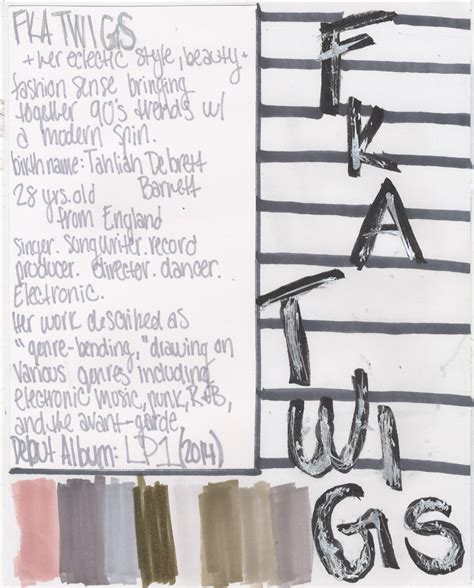 FKA TWIGS
+ her eclectic style, beauty +
fashion sense bringing
together 90's trends w/
a modern spin.
birth name: Tahliah Debrett
Barnett
28 yrs. old
from England
singer. songwriter. record
producer. director. dancer.
Electronic.
Her work described as
"genre-bending," drawing on
various genres including
electronic music, punk, R&B,
and the avant-garde.
DEBUT ALBUM: LP1 (2014)
FKA TWIGS